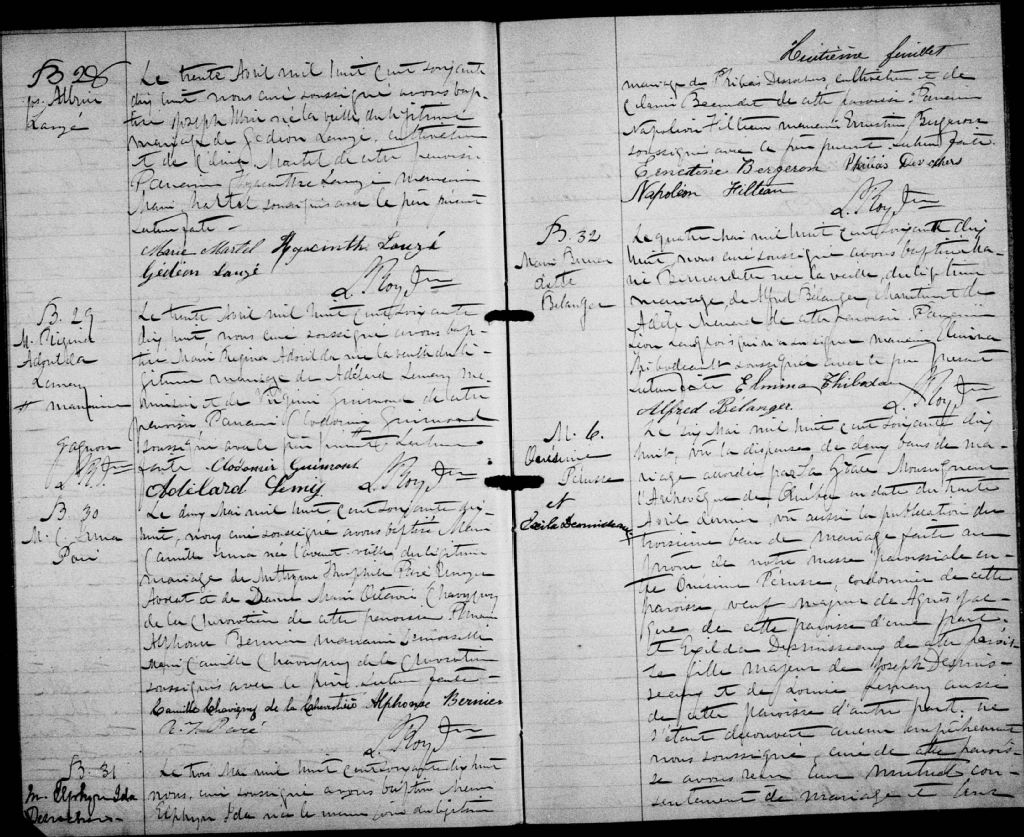 B 28
Le trente Avril mil huit cent soixante
dix huit nous curé soussigné avons bap-
tisé Joseph née la veille du légitime
mariage de Gédéon Lauzé, cultivateur
et de Célina Martel de cette paroisse
Parrain Hyacinthe Lauzé marraine
Marie Martel soussignés avec le père présent
lecture faite -
Marie Martel Hyacinthe Lauzé
Gédéon Lauzé
L. Roy Ptre
B. 29
M. Régina
Lemay
et marraine
Gagnon
L R Ptre
Le trente Avril mil huit cent soixante
dix huit, nous curé soussigné avons bap-
tisé Marie Régina née la veille du lé-
gitime mariage de Adélard Lemay
et de Virginie Guimond de cette
paroisse Parrain Clodomir Guimond
soussigné avec le père présent. Lecture
faite Clodomir Guimont
Adélard Lemay L. Roy Ptre
B. 30
M. C. Anna
Paré
Le deux Mai mil huit cent soixante dix-
huit, nous curé soussigné avons baptisé Marie
Camille Anna née l'avant veille du légitime
mariage de Théophile Paré
Avocat et de Dame Marie Chavigny
de la Chevrotière de cette paroisse Parrain
Alphonse Bernier marraine Demoiselle
Marie Camille Chavigny de la Chevrotière
soussignés avec le père. Lecture faite. -
Camille Chavigny de la Chevrotière Alphonse Bernier
Paré
L. Roy Ptre
B. 31
M. Elphyn Ida
Desrochers -
Le trois Mai mil huit cent soixante dix huit
nous, curé soussigné avons baptisé Marie
Elphyn Ida née le même jour du légitime
Huitième feuillet
mariage de Philias Desrochers cultivateur et de
Beaudet de cette paroisse Parrain
Napoléon Filteau marraine Ernestine Bergeron
soussignés avec le père présent. Lecture faite.
Ernestine Bergeron Philias Devochers
Napoléon Filteau
L. Roy Ptre
B. 32
Marie Bernar
dette
Bélanger
Le quatre Mai mil huit cent soixante dix
huit, nous curé soussigné avons baptisé Ma-
rie Bernardette née la veille, du légitime
mariage de Alfred Bélanger, et de
Adèle Ménard de cette paroisse. Parrain
Léon Langlois qui n'a su signer marraine Elmina
Thibodeau soussignée avec le père présent
Lecture faite Elmina Thibodeau
Alfred Bélanger. L. Roy Ptre
M. 6.
Onésime
Pérusse
et
Exilda Desruisseaux
Le six Mai mil huit cent soixante dix
huit, vû la dispense de deux bans de ma-
riage accordée par Sa Grâce Monseigneur
l'Archevêque de Québec en date du trente
Avril dernier, vû aussi la publication du
troisième ban de mariage faite au
prône de notre messe paroissiale en-
tre Onésime Pérusse, cordonnier de cette
paroisse, veuf majeur de Agnès
de cette paroisse d'une part
et Exilda Desruisseaux de cette parois-
se fille majeur de Joseph Desruis-
seaux et de Louise aussi
de cette paroisse d'autre part; ne
s'étant découvert aucun empêchement
nous soussigné, curé de cette parois-
se avons reçu leur mutuel con-
sentement de mariage et leur